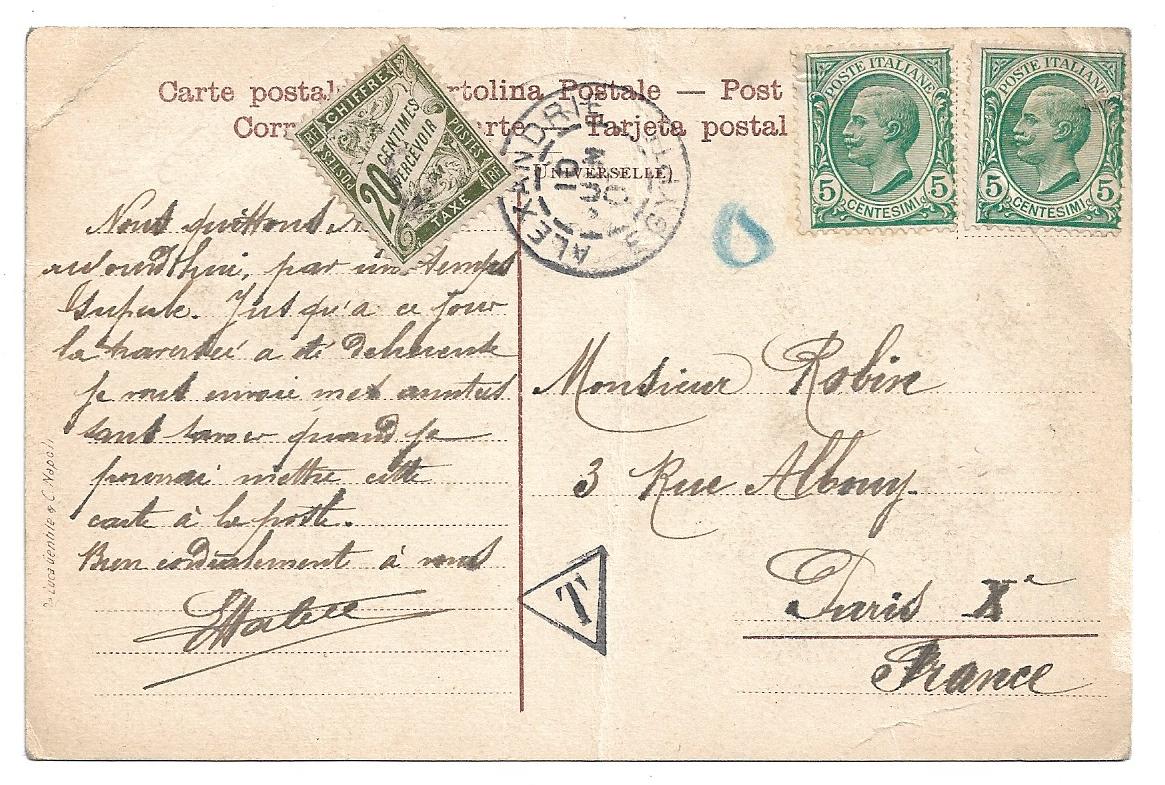 Carte postal rtolina Postale — Post
Corr arte Tarjeta postal
(UNIVERSELLE)
CHIFFRE
POSTES
RF
20
CENTIMES
A PERCEVOIR
POSTES
RF
TAXE
ALEXANDRIE
EGYPTE
10
POSTE ITALIANE
5 CENTESIMI 5
POSTE ITALIANE
5 CENTESIMI 5
Nous quittons
aujourd'hui, par un temps
superbe. Jusqu'à ce jour
la traversée a été
je vous envoie mes amitiés
sans savoir quand je
pourrai mettre cette
carte à la poste.
Bien cordialement à vous
Monsieur Robin
3 Rue Albouy.
Paris Xe
France
T
Luca Gentile & C. Napoli